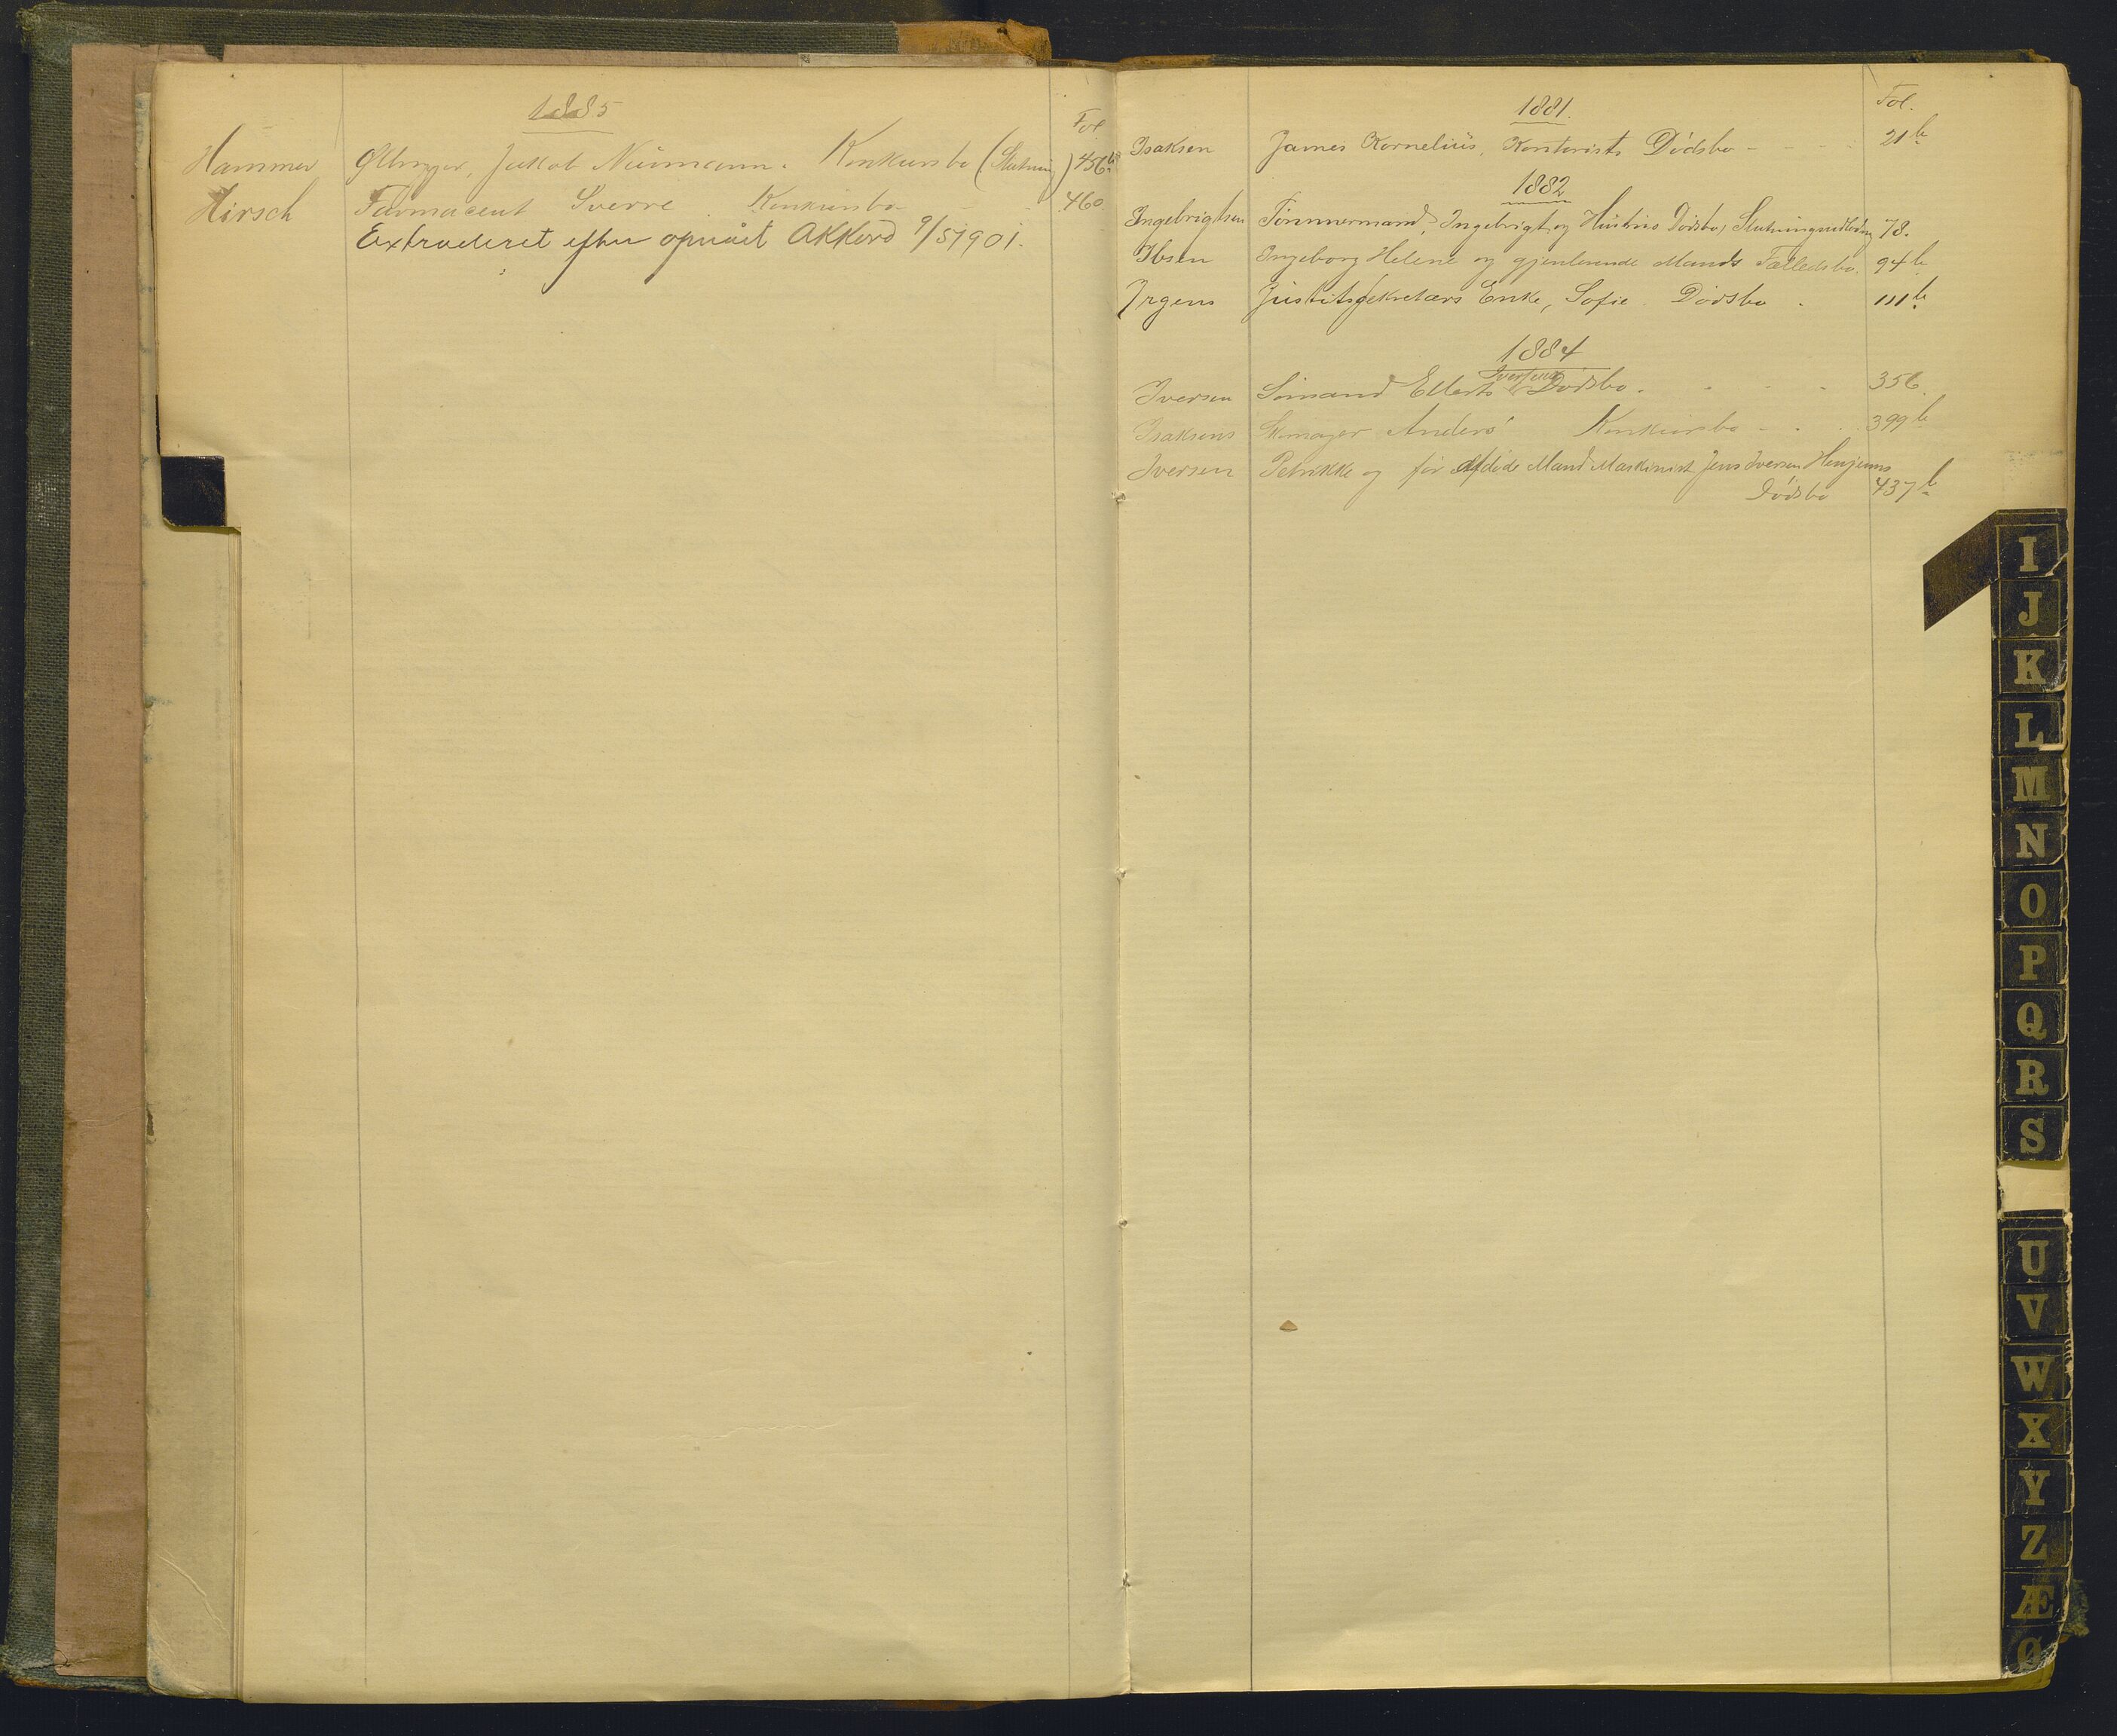 1885
Fol.
Hammer Ølbrygger, Jakob Neumann. Konkursbo (Slutning) 456b
Hirsch Farmaceut Sverre Konkursbo 460
Extraderet efter opnået Akkord 9/5 1901.
1881.
Fol.
Isaksen James Kornelius, Kontorists Dödsbo - - 21b
1882
Ingebrigtsen Tömmermand, Ingebrigt og Hustrus Dödsbo, Slutning 78.
Ibsen Ingeborg Helene og gjenlevende Mands Fælledsbo. 94b
Irgens Justitssekretærs Enke, Sofie. Dödsbo . 111b
1884
Iversens
Iversen Sömand Ellerts Dödsbo. - - - 356
Isaksens Skomager Anders' Konkursbo - - . 399b
Iversen Petrikke og för afdöde Mand Maskinist Jens Iversen Henjums
Dödsbo 437b
I
J
K
L
M
N
O
P
Q
R
S
U
V
W
X
Y
Z
Æ
Ø